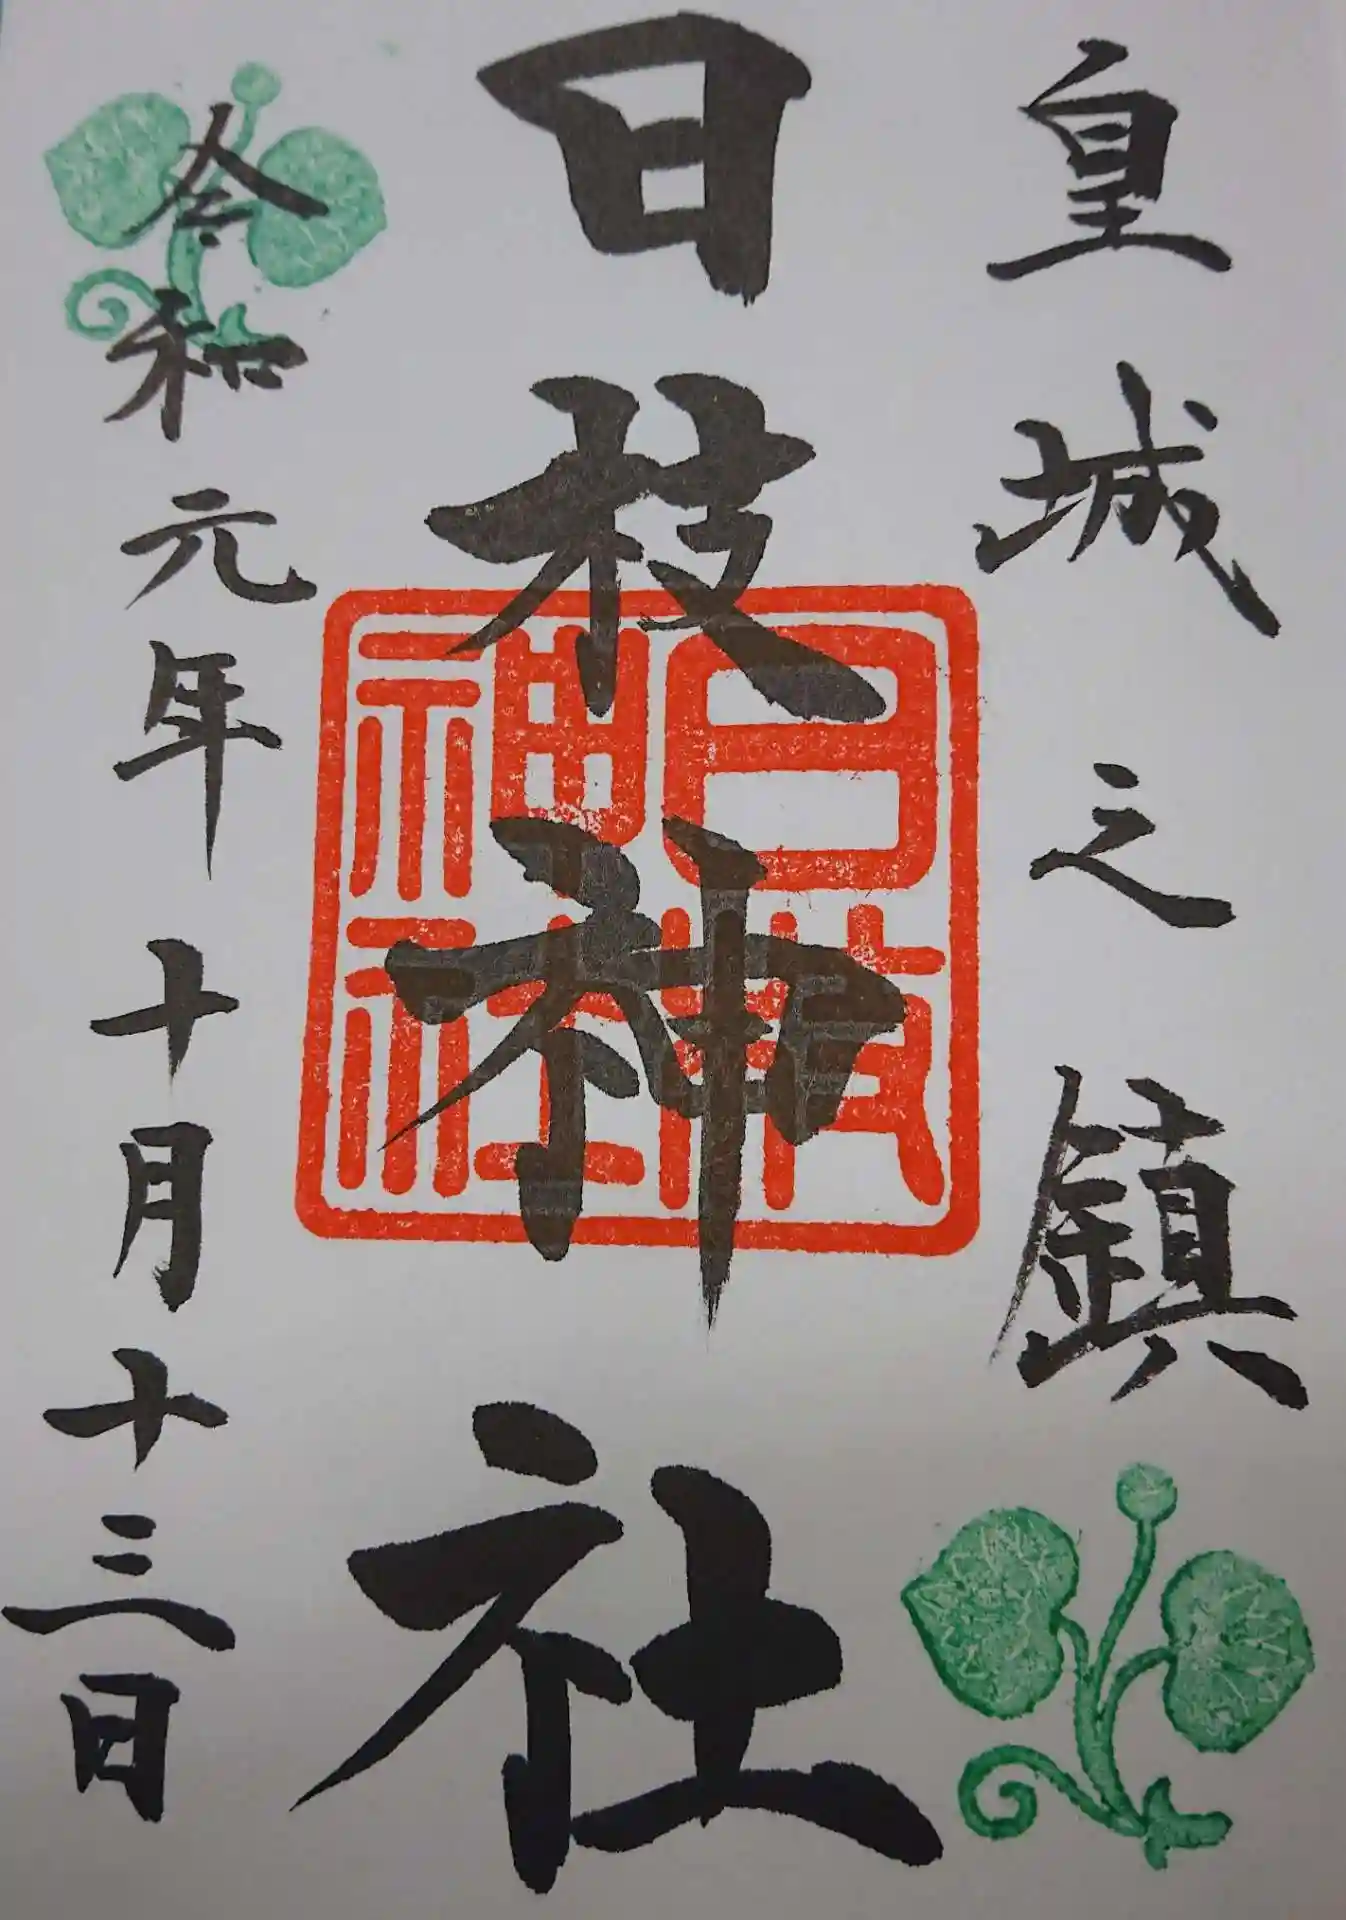 皇城之鎮
日枝神社
日枝神社
令和元年十月十三日